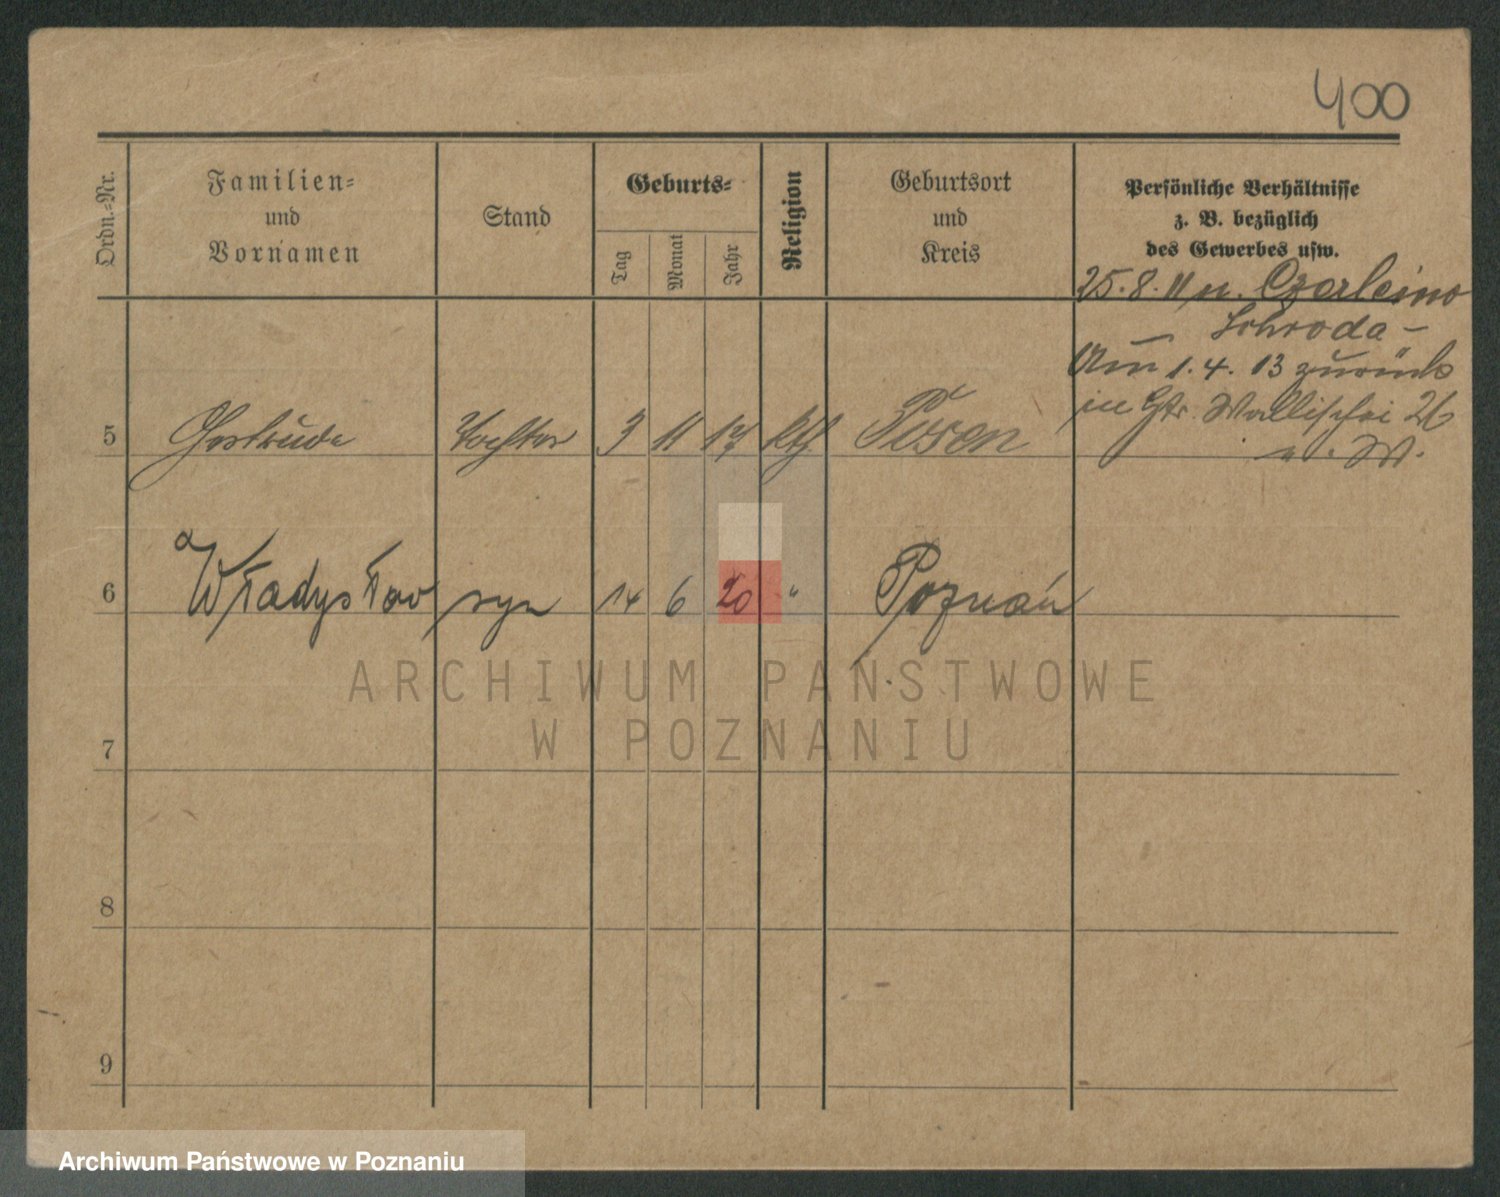 400
Ordn.-Nr.
Familien-
und
Vornamen
Stand
Geburts-
Tag
Monat
Jahr
Religion
Geburtsort
und
Kreis
Persönliche Verhältnisse
z. B. bezüglich
des Gewerbes usw.
25.8.11 n. Czerleino
Schroda -
Am 1.4.13 zurück
in Wallischei 26
5 Gertrude Tochter 3 11 17 kth Posen
6 Władysław syn 14 6 20 " Poznań
7
8
9
ARCHIWUM PAŃSTWOWE
W POZNANIU
Archiwum Państwowe w Poznaniu